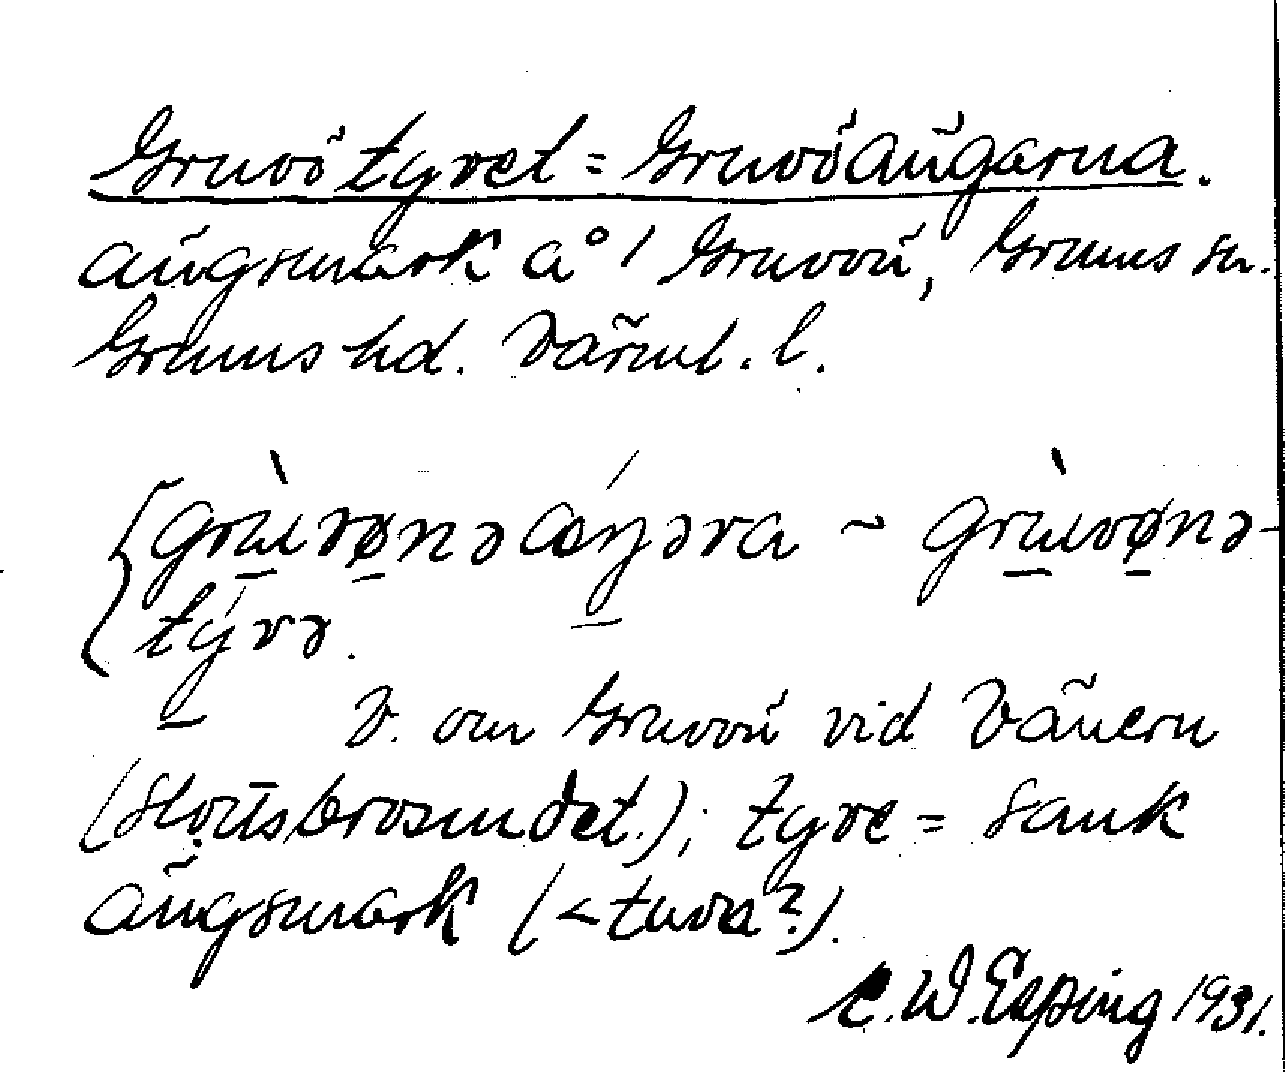 Gruvötyvet = Gruvöängarna.
ängsmark å 1 Gruvön, Grums sn.
Grums hd. Värml. l.
{ grùvønəœŋəra ~ grùvønə-
tývə.
V. om Gruvön vid Vänern
tyve = sank
ängsmark (< tuva?).
E. W. Epping 1931.